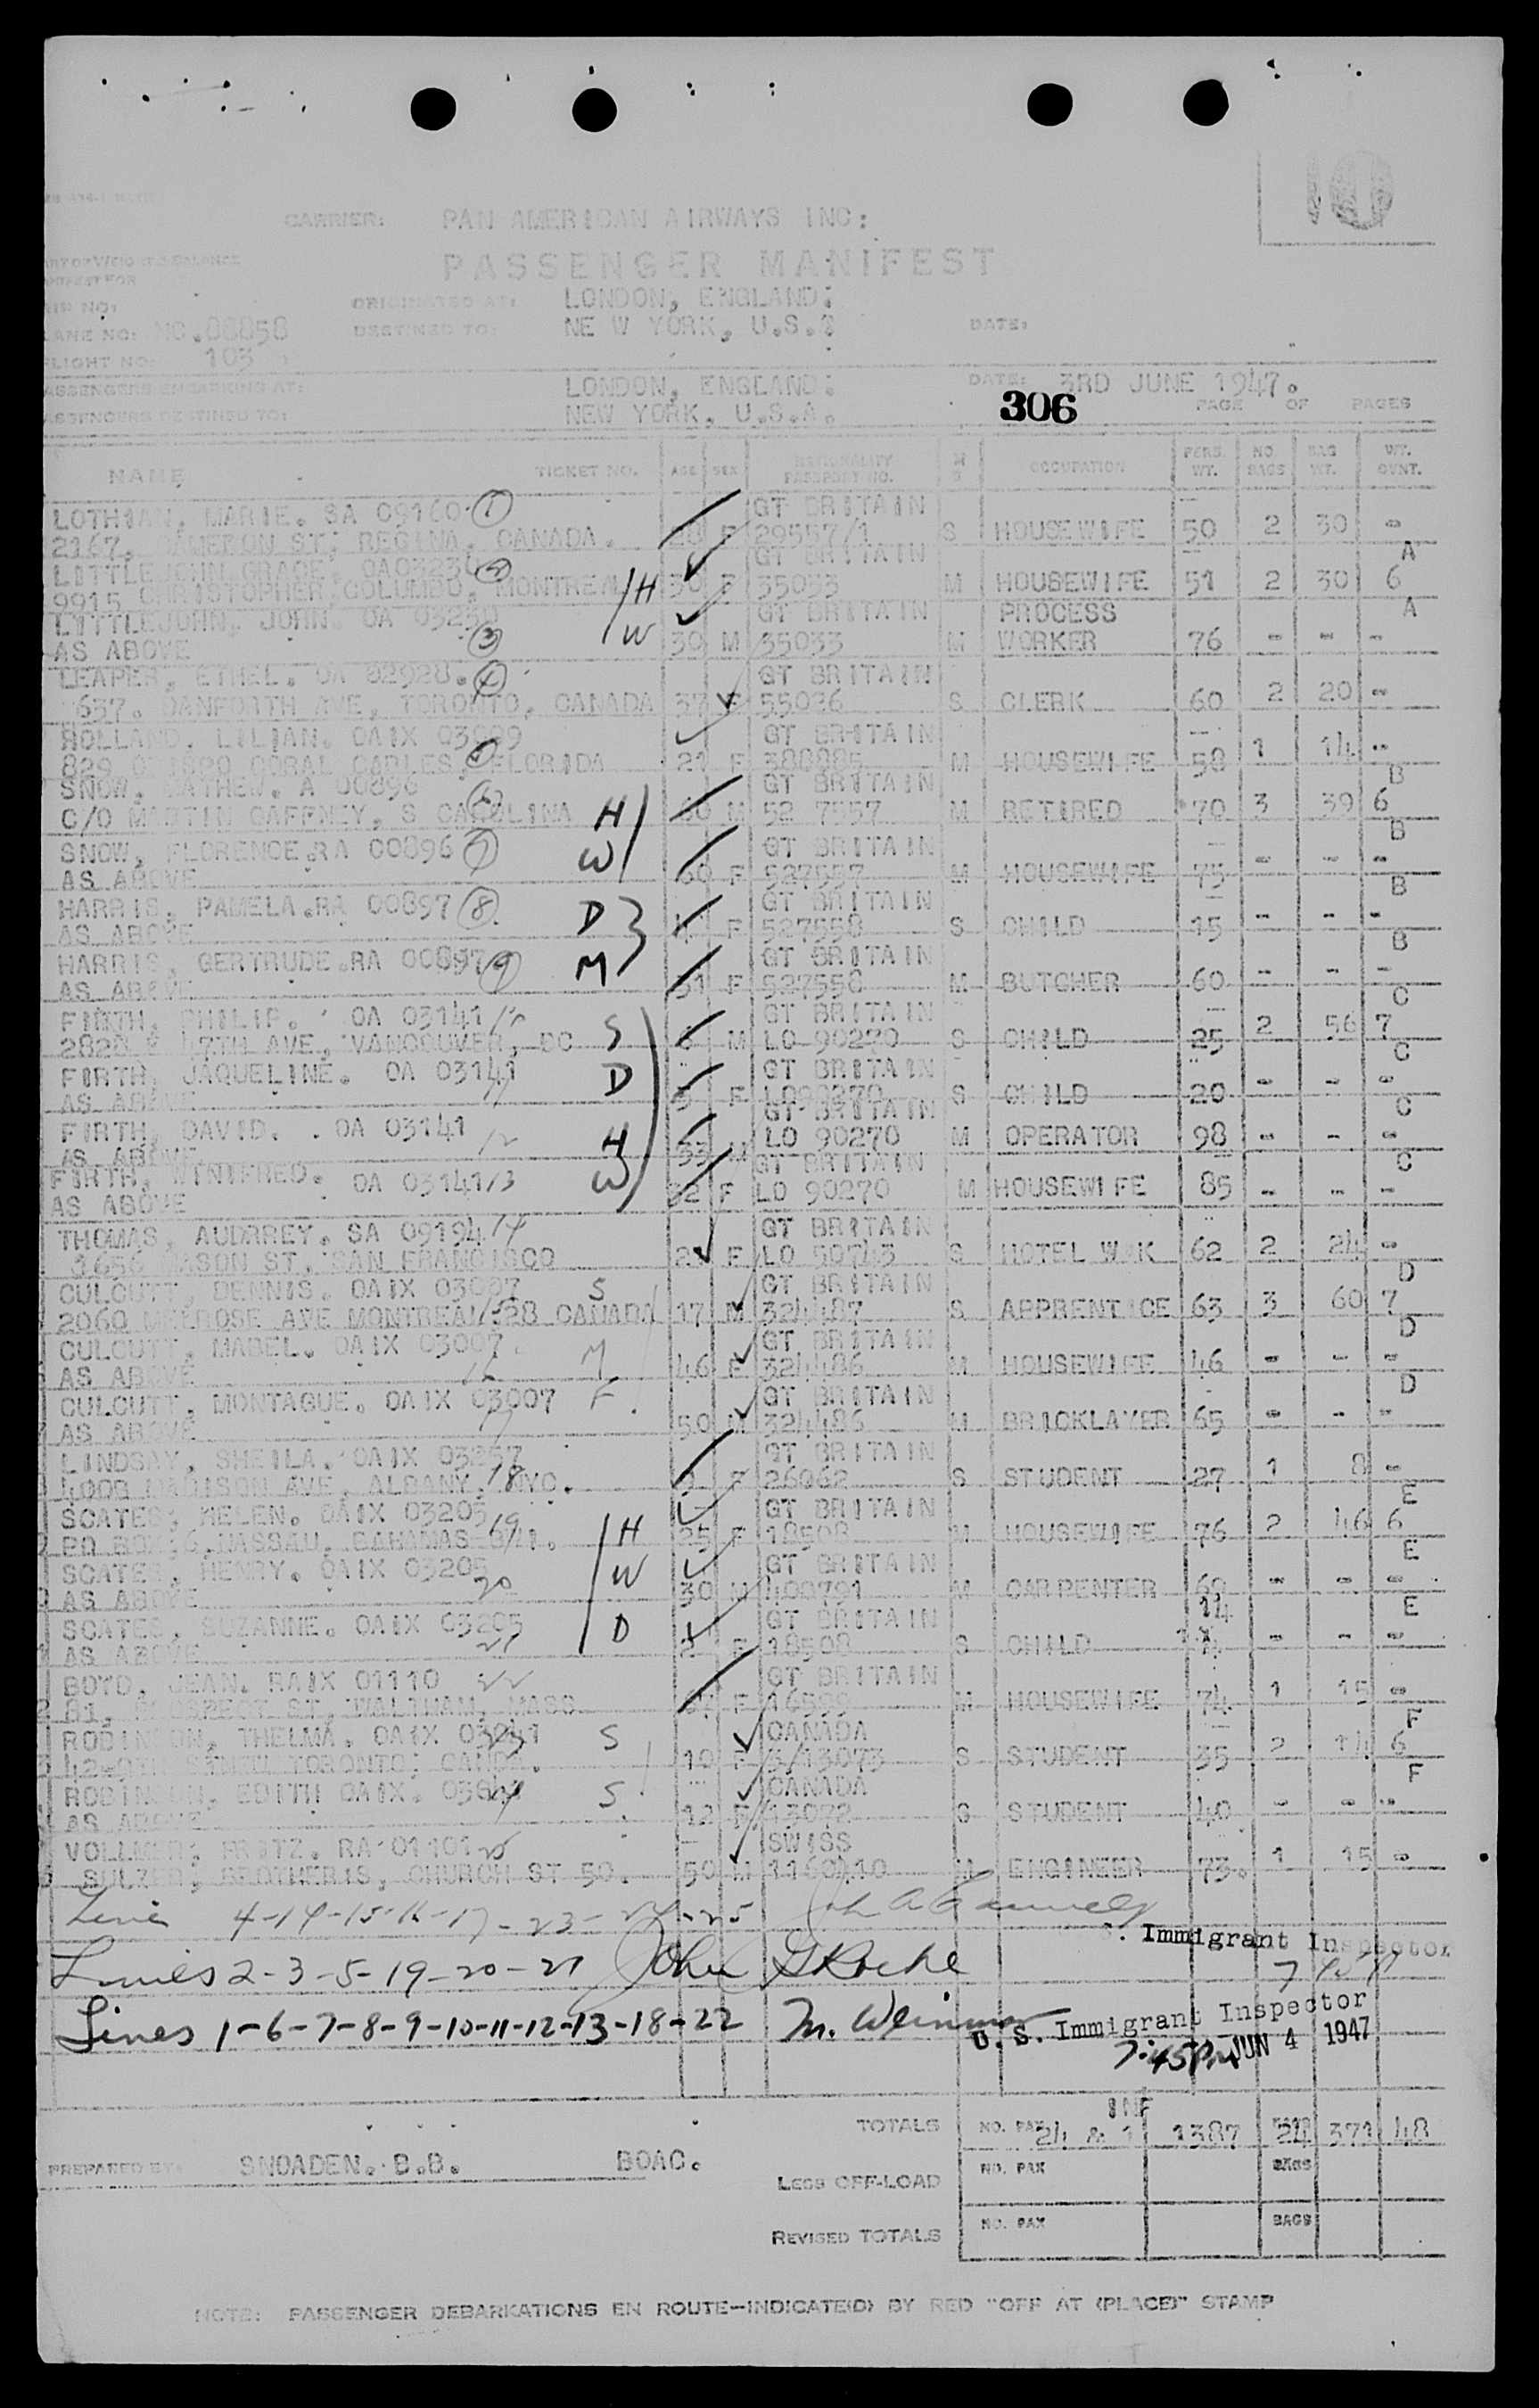 10
CARRIER: PAN AMERICAN AIRWAYS INC:
PASSENGER MANIFEST
ORIGINATED AT: LONDON, ENGLAND:
PLANE NO: NC.88858 DESTINED TO: NEW YORK, U.S.A DATE:
FLIGHT NO: 103
PASSENGERS EMBARKING AT: LONDON, ENGLAND: DATE: 3RD JUNE 1947.
306 PAGE OF PAGES
PASSENGERS DESTINED TO: NEW YORK, U.S.A.
NAME TICKET NO. AGE SEX NATIONALITY PASSPORT NO. M S OCCUPATION PERS. WT. NO. BAGS BAG WT. WT. QVNT.
LOTHIAN, MARIE. SA 09160 1 GT BRITAIN
2167, CAMERON ST, REGINA, CANADA. F 29557/1 S HOUSEWIFE 50 2 30 -
LITTLEJOHN GRACE, OA 2 GT BRITAIN A
9915 CHRISTOPHER COLUMBO, MONTREAL H 30 F 35033 M HOUSEWIFE 51 2 30 6
LITTLEJOHN, JOHN. OA 03230 GT BRITAIN PROCESS A
AS ABOVE 3 W 30 M 35033 M WORKER 76 - - -
LEAPER, ETHEL. OA 02928. 4 GT BRITAIN
637. DANFORTH AVE, TORONTO, CANADA 37 F 55036 S CLERK 60 2 20 -
HOLLAND, LILIAN. OAIX GT BRITAIN
829 CORAL GABLES, FLORIDA 21 F 388885 M HOUSEWIFE 58 1 14 -
SNOW, MATHEW. A 00896 6 GT BRITAIN B
C/O MARTIN GAFFNEY, S CAROLINA H 60 M 52 7557 M RETIRED 70 3 39 6
SNOW, FLORENCE.RA 00896 7 GT BRITAIN B
AS ABOVE W 60 F 527557 M HOUSEWIFE 75 - - -
HARRIS, PAMELA.RA 00897 8 D GT BRITAIN B
AS ABOVE F 527558 S CHILD 15 - - -
HARRIS, GERTRUDE.RA 00897 9 M GT BRITAIN B
AS ABOVE 31 F 527558 M BUTCHER 60 - - -
FIRTH, PHILIP. OA 03141 10 S GT BRITAIN C
2828 E 47TH AVE, VANCOUVER, BC 6 M LO 90270 S CHILD 25 2 56 7
FIRTH, JAQUELINE. OA 03141 D GT BRITAIN C
AS ABOVE 11 3 F LO90270 S CHILD 20 - - -
FIRTH, DAVID. OA 03141 GT BRITAIN C
AS ABOVE 12 H 33 M LO 90270 M OPERATOR 98 - - -
FIRTH, WINIFRED. OA 03141 13 W GT BRITAIN C
AS ABOVE 32 F LO 90270 M HOUSEWIFE 85 - - -
THOMAS, AUDRREY. SA 09194 14 GT BRITAIN
MASON ST, SAN FRANCISCO F LO 50743 S HOTEL WRK 62 2 24 -
CULCUTT, DENNIS. OAIX 03007 S GT BRITAIN D
2060 MELROSE AVE MONTREAL 28 CANADA 15 17 M 324487 S APPRENTICE 63 3 60 7
CULCUTT, MABEL. OAIX 03007. GT BRITAIN D
AS ABOVE 16 M 46 F 324486 M HOUSEWIFE 46 - - -
CULCUTT, MONTAGUE. OAIX 03007 F GT BRITAIN D
AS ABOVE 17 50 M 324486 M BRICKLAYER 65 - - -
LINDSAY, SHEILA. OAIX 03257 GT BRITAIN
MADISON AVE, ALBANY, NYC. 18 F 26062 S STUDENT 27 1 8 -
SCATES, HELEN. OAIX 03205 19 GT BRITAIN E
PO BOX NASSAU, BAHAMAS H 25 F 18508 M HOUSEWIFE 76 2 46 6
SCATES, HENRY. OAIX 03205 W GT BRITAIN E
AS ABOVE 20 30 M 400791 M CARPENTER 69 - - -
SCATES, SUZANNE. OAIX 03205 D GT BRITAIN 14 E
AS ABOVE 21 2 F 18508 S CHILD - - -
BOYD, JEAN. RAIX 01110 22 GT BRITAIN
81, PROSPECT ST, WALTHAM, MASS F 16599 M HOUSEWIFE 74 1 15 -
ROBINSON, THELMA. OAIX 23 S CANADA F
TORONTO, CANDA. 10 F 3/13073 S STUDENT 35 2 14 6
ROBINSON, EDITH OAIX. 24 S. CANADA F
AS ABOVE 12 F 13072 S STUDENT 40 - - -
VOLLMER, FRITZ. RA 01101 25 SWISS
SULZER, BROTHERIS, CHURCH ST 50. 50 M 1160410 M ENGINEER 73. 1 15 -
Line 4-14-15-16-17-23-24-25 John A
Immigrant Inspector
Lines 2-3-5-19-20-21 John G Roche
Lines 1-6-7-8-9-10-11-12-13-18-22 M.
U.S. Immigrant Inspector
7:45PM JUN 4 1947
INF
TOTALS NO. PAX 24 & 1 1387 BAGS 24 371 48
PREPARED BY: SNOADEN. B.B. BOAC.
LESS OFF-LOAD NO. PAX BAGS
REVISED TOTALS NO. PAX BAGS
NOTE: PASSENGER DEBARKATIONS EN ROUTE—INDICATE(D) BY RED "OFF AT (PLACE)" STAMP